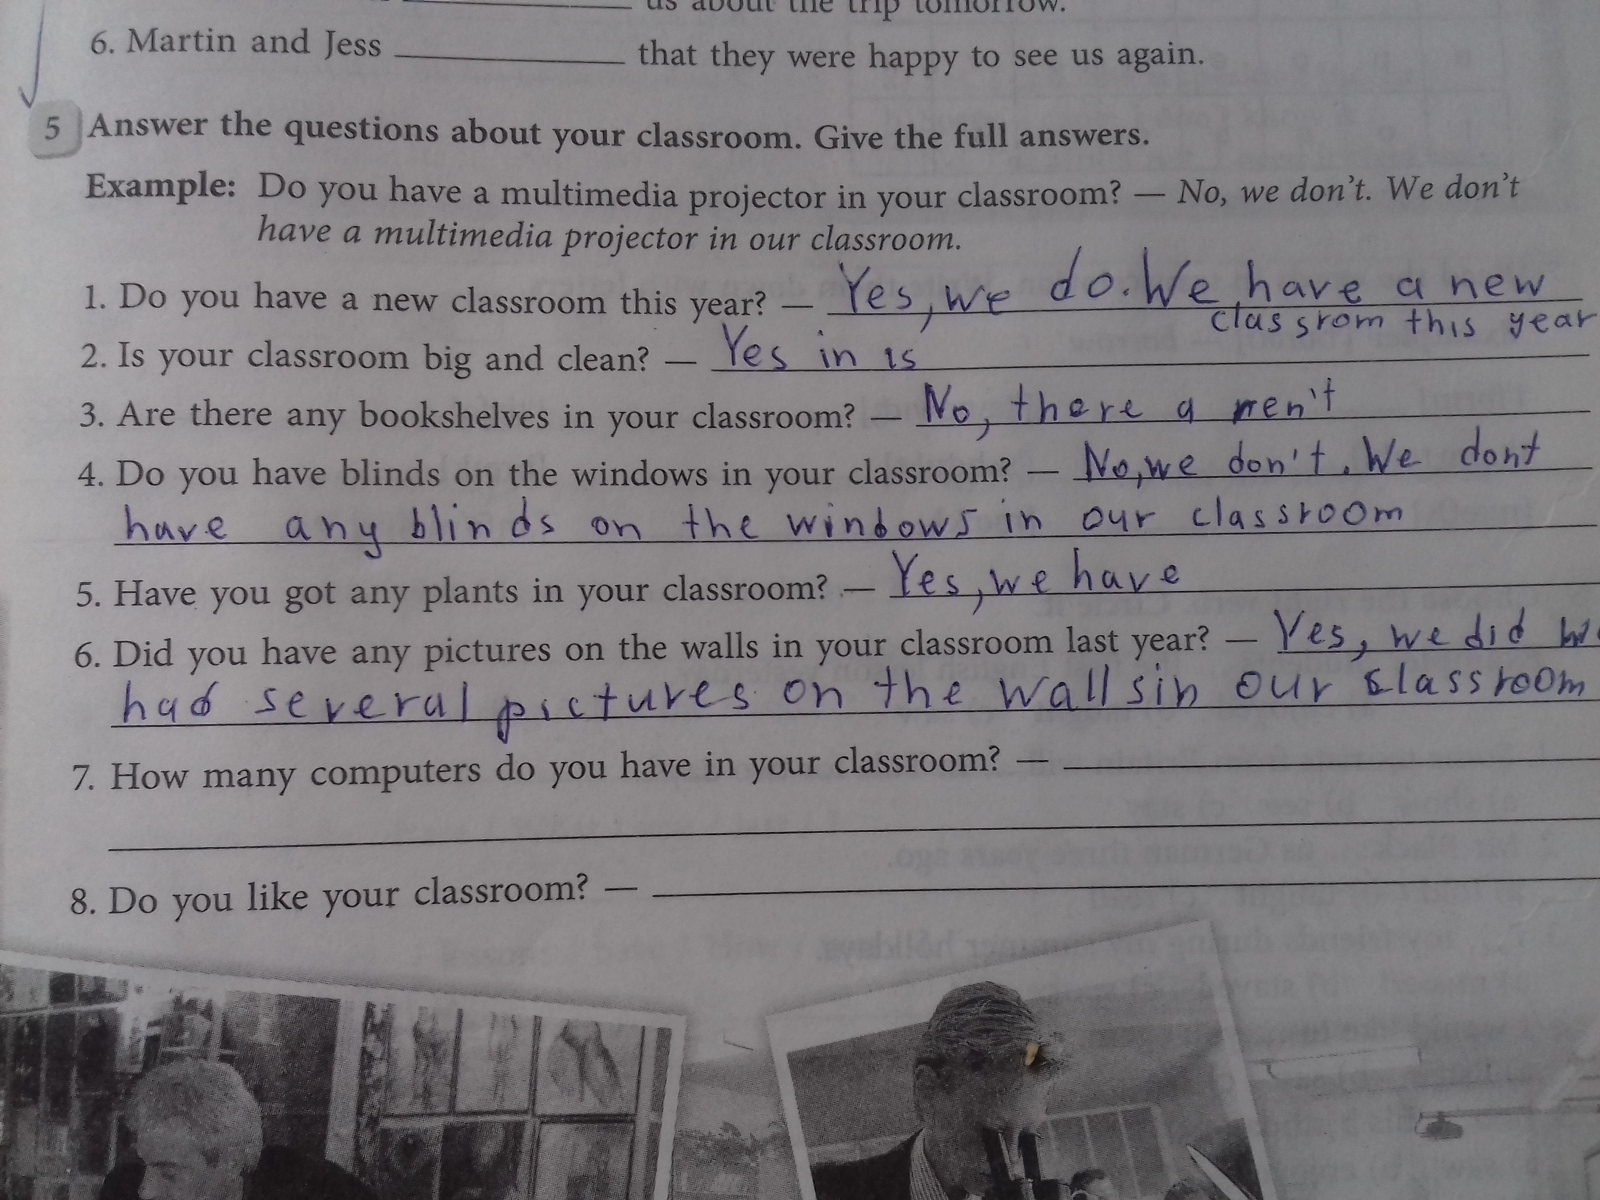 us about the trip tomorrow.
6. Martin and Jess ____________ that they were happy to see us again.
5 Answer the questions about your classroom. Give the full answers.
Example: Do you have a multimedia projector in your classroom? — No, we don't. We don't
have a multimedia projector in our classroom.
1. Do you have a new classroom this year? — Yes, we do. We have a new
classrom this year
2. Is your classroom big and clean? — Yes in is
3. Are there any bookshelves in your classroom? — No, there a ren't
4. Do you have blinds on the windows in your classroom? — No, we don't. We dont
have any blinds on the windows in our classroom
5. Have you got any plants in your classroom? — Yes, we have
6. Did you have any pictures on the walls in your classroom last year? — Yes, we did
had several pictures on the walls in our classroom
7. How many computers do you have in your classroom? —
8. Do you like your classroom? —